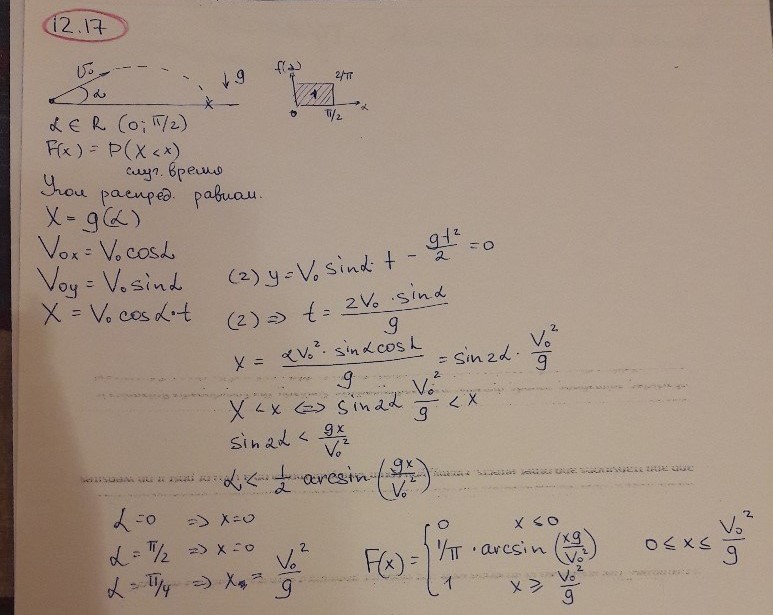 12.17
V₀ α g
f(α) 2/π
0 π/2 α
α ∈ R (0; π/2)
F(x) = P(X < x)
случ. время
Угол распред. равном.
X = g(α)
V₀ₓ = V₀ cosα
V₀y = V₀ sinα
(2) y = V₀ sinα t - gt²/2 = 0
X = V₀ cosα·t
(2) ⇒ t = 2V₀ · sinα / g
X = 2V₀² · sinα cosα / g = sin2α · V₀²/g
X < x ⇔ sin2α V₀²/g < x
sin2α < gx/V₀²
α < 1/2 arcsin (gx/V₀²)
α = 0 ⇒ x = 0
α = π/2 ⇒ x = 0
α = π/4 ⇒ x = V₀²/g
F(x) = { 0 x ≤ 0
1/π · arcsin (xg/V₀²) 0 ≤ x ≤ V₀²/g
1 x ≥ V₀²/g